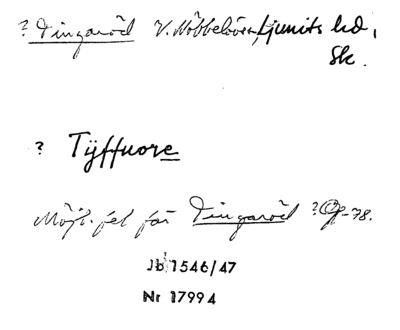 ? Dingaröd V. Nöbbelöv, Ljunits hd,
Sk.
? Tÿffuore
Möjl. fel för Dingaröd ? -78.
Jb 1546/47
Nr 17994